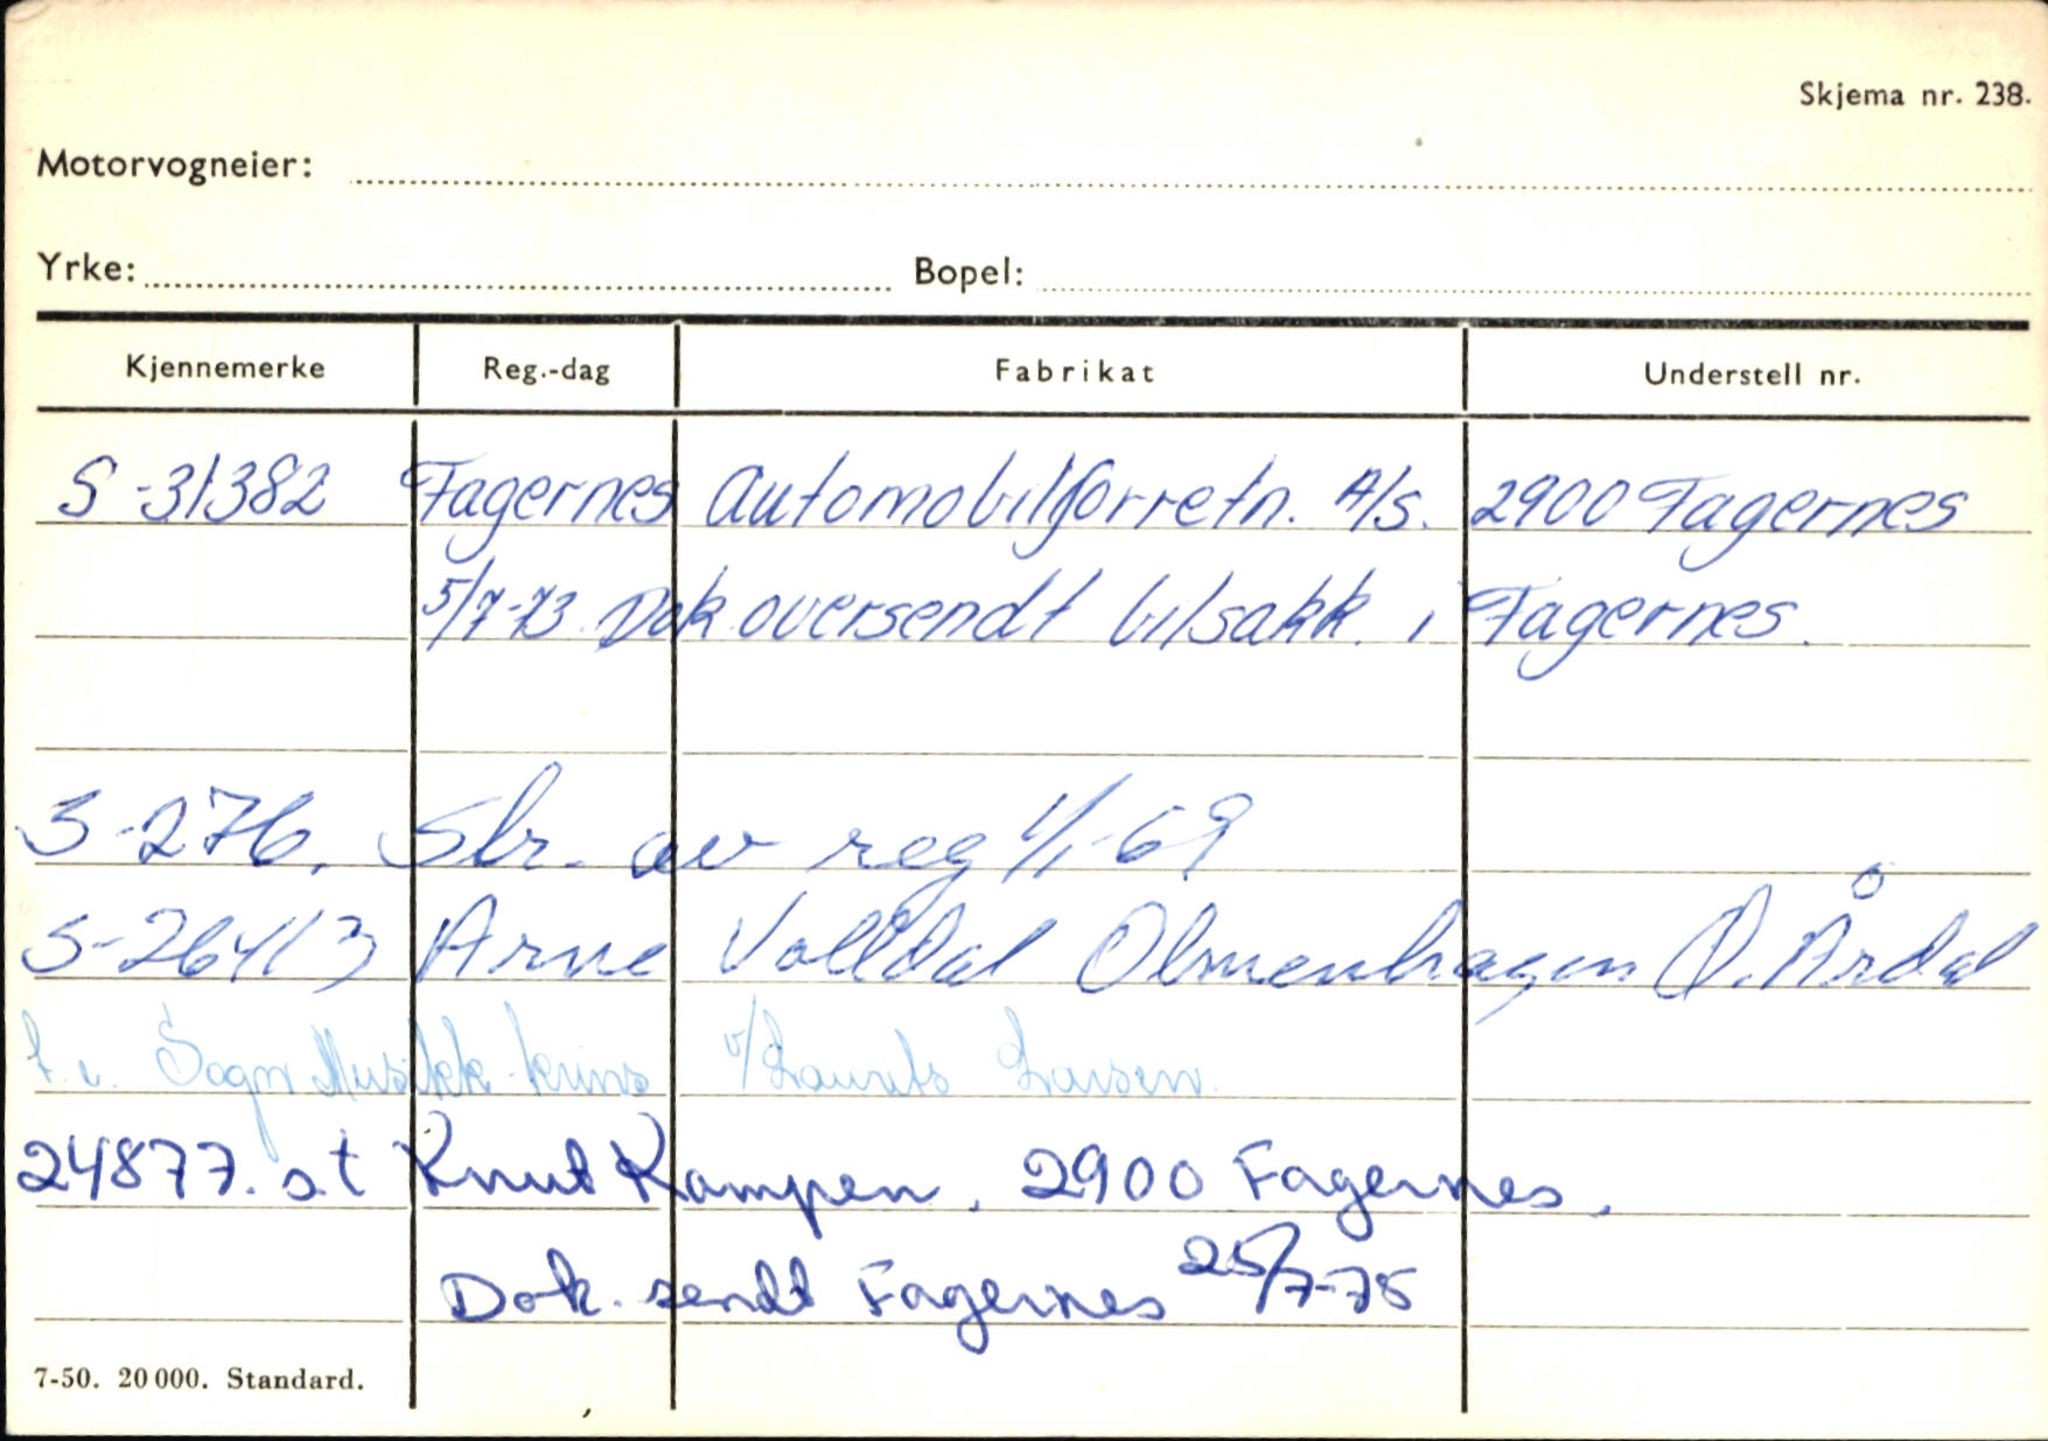 Skjema nr. 238.
Motorvogneier:
Yrke: Bopel:
Kjennemerke Reg.-dag Fabrikat Understell nr.
S-31382 Fagernes Automobilforretn. A/s. 2900 Fagernes
5/7-73. Dok oversendt bilsakk. i Fagernes.
S-276. Slr. av reg 1/1-69
S-26413 Arne Volldal Olmenhagen Ø. Årdal
t.v. Sogn Musikk-krins v/Laurits Larsen.
24877. s.t Knut Kampen, 2900 Fagernes.
Dok. sendt Fagernes 25/7-75
7-50. 20 000. Standard.